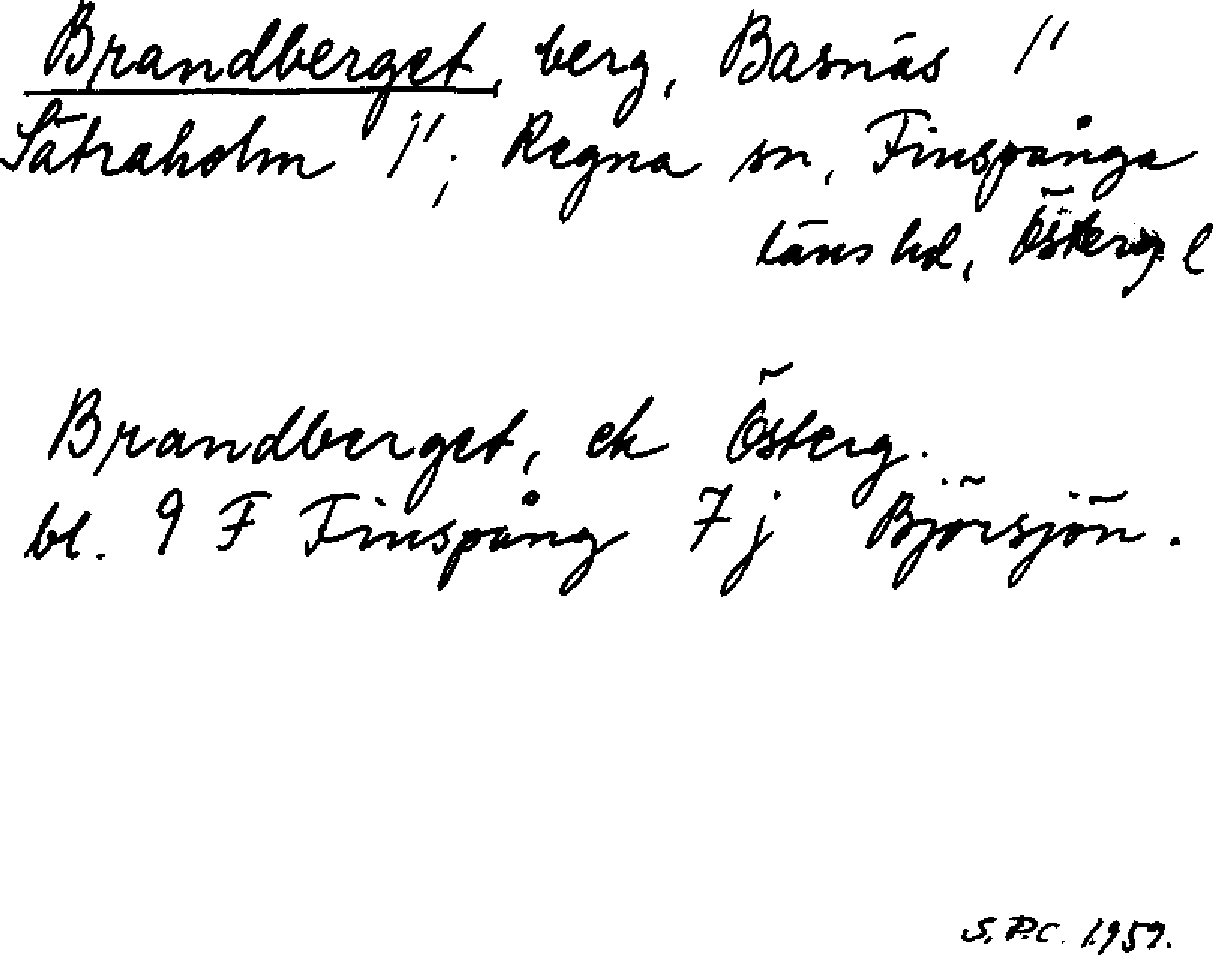 Brandberget, berg, Basnäs 1/1
Sätraholm 1/1; Regna sn, Finspånga
läns hd, Österg. l
Brandberget, ek Österg.
bl. 9 F Finspång 7 j Björsjön.
S.P.C. 1959.